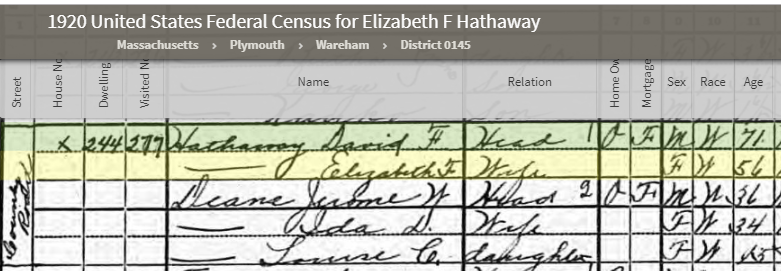 1920 United States Federal Census for Elizabeth F Hathaway
Massachusetts › Plymouth › Wareham › District 0145
Street House No Dwelling Visited N Name Relation Home Ow Mortgage Sex Race Age
X 244 277 Hathaway David F Head 1 O F M W 71
— Elizabeth F Wife F W 56
County Road Deane Jerome W Head 2 O F M W 36
— Ida D. Wife F W 34
— Louise C. daughter F W